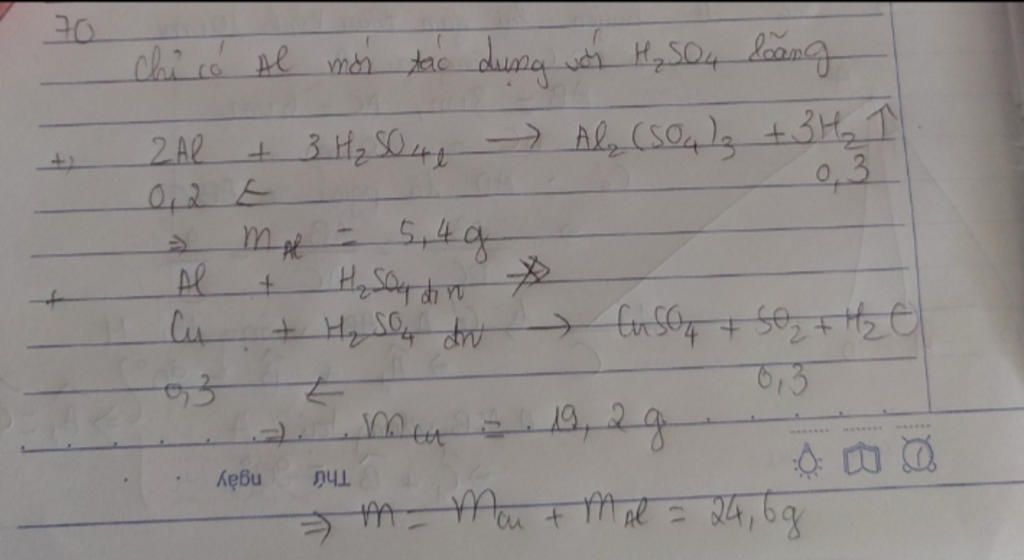 70
Chỉ có Al mới tác dụng với H₂SO₄ loãng
+) 2Al + 3H₂SO₄ l → Al₂(SO₄)₃ + 3H₂↑
0,2 ← 0,3
⇒ mAl = 5,4g
+ Al + H₂SO₄ đn ↛
Cu + H₂SO₄ đn → CuSO₄ + SO₂ + H₂O
0,3 ← 0,3
⇒ mCu = 19,2g
Thứ ngày
⇒ m = mCu + mAl = 24,6g